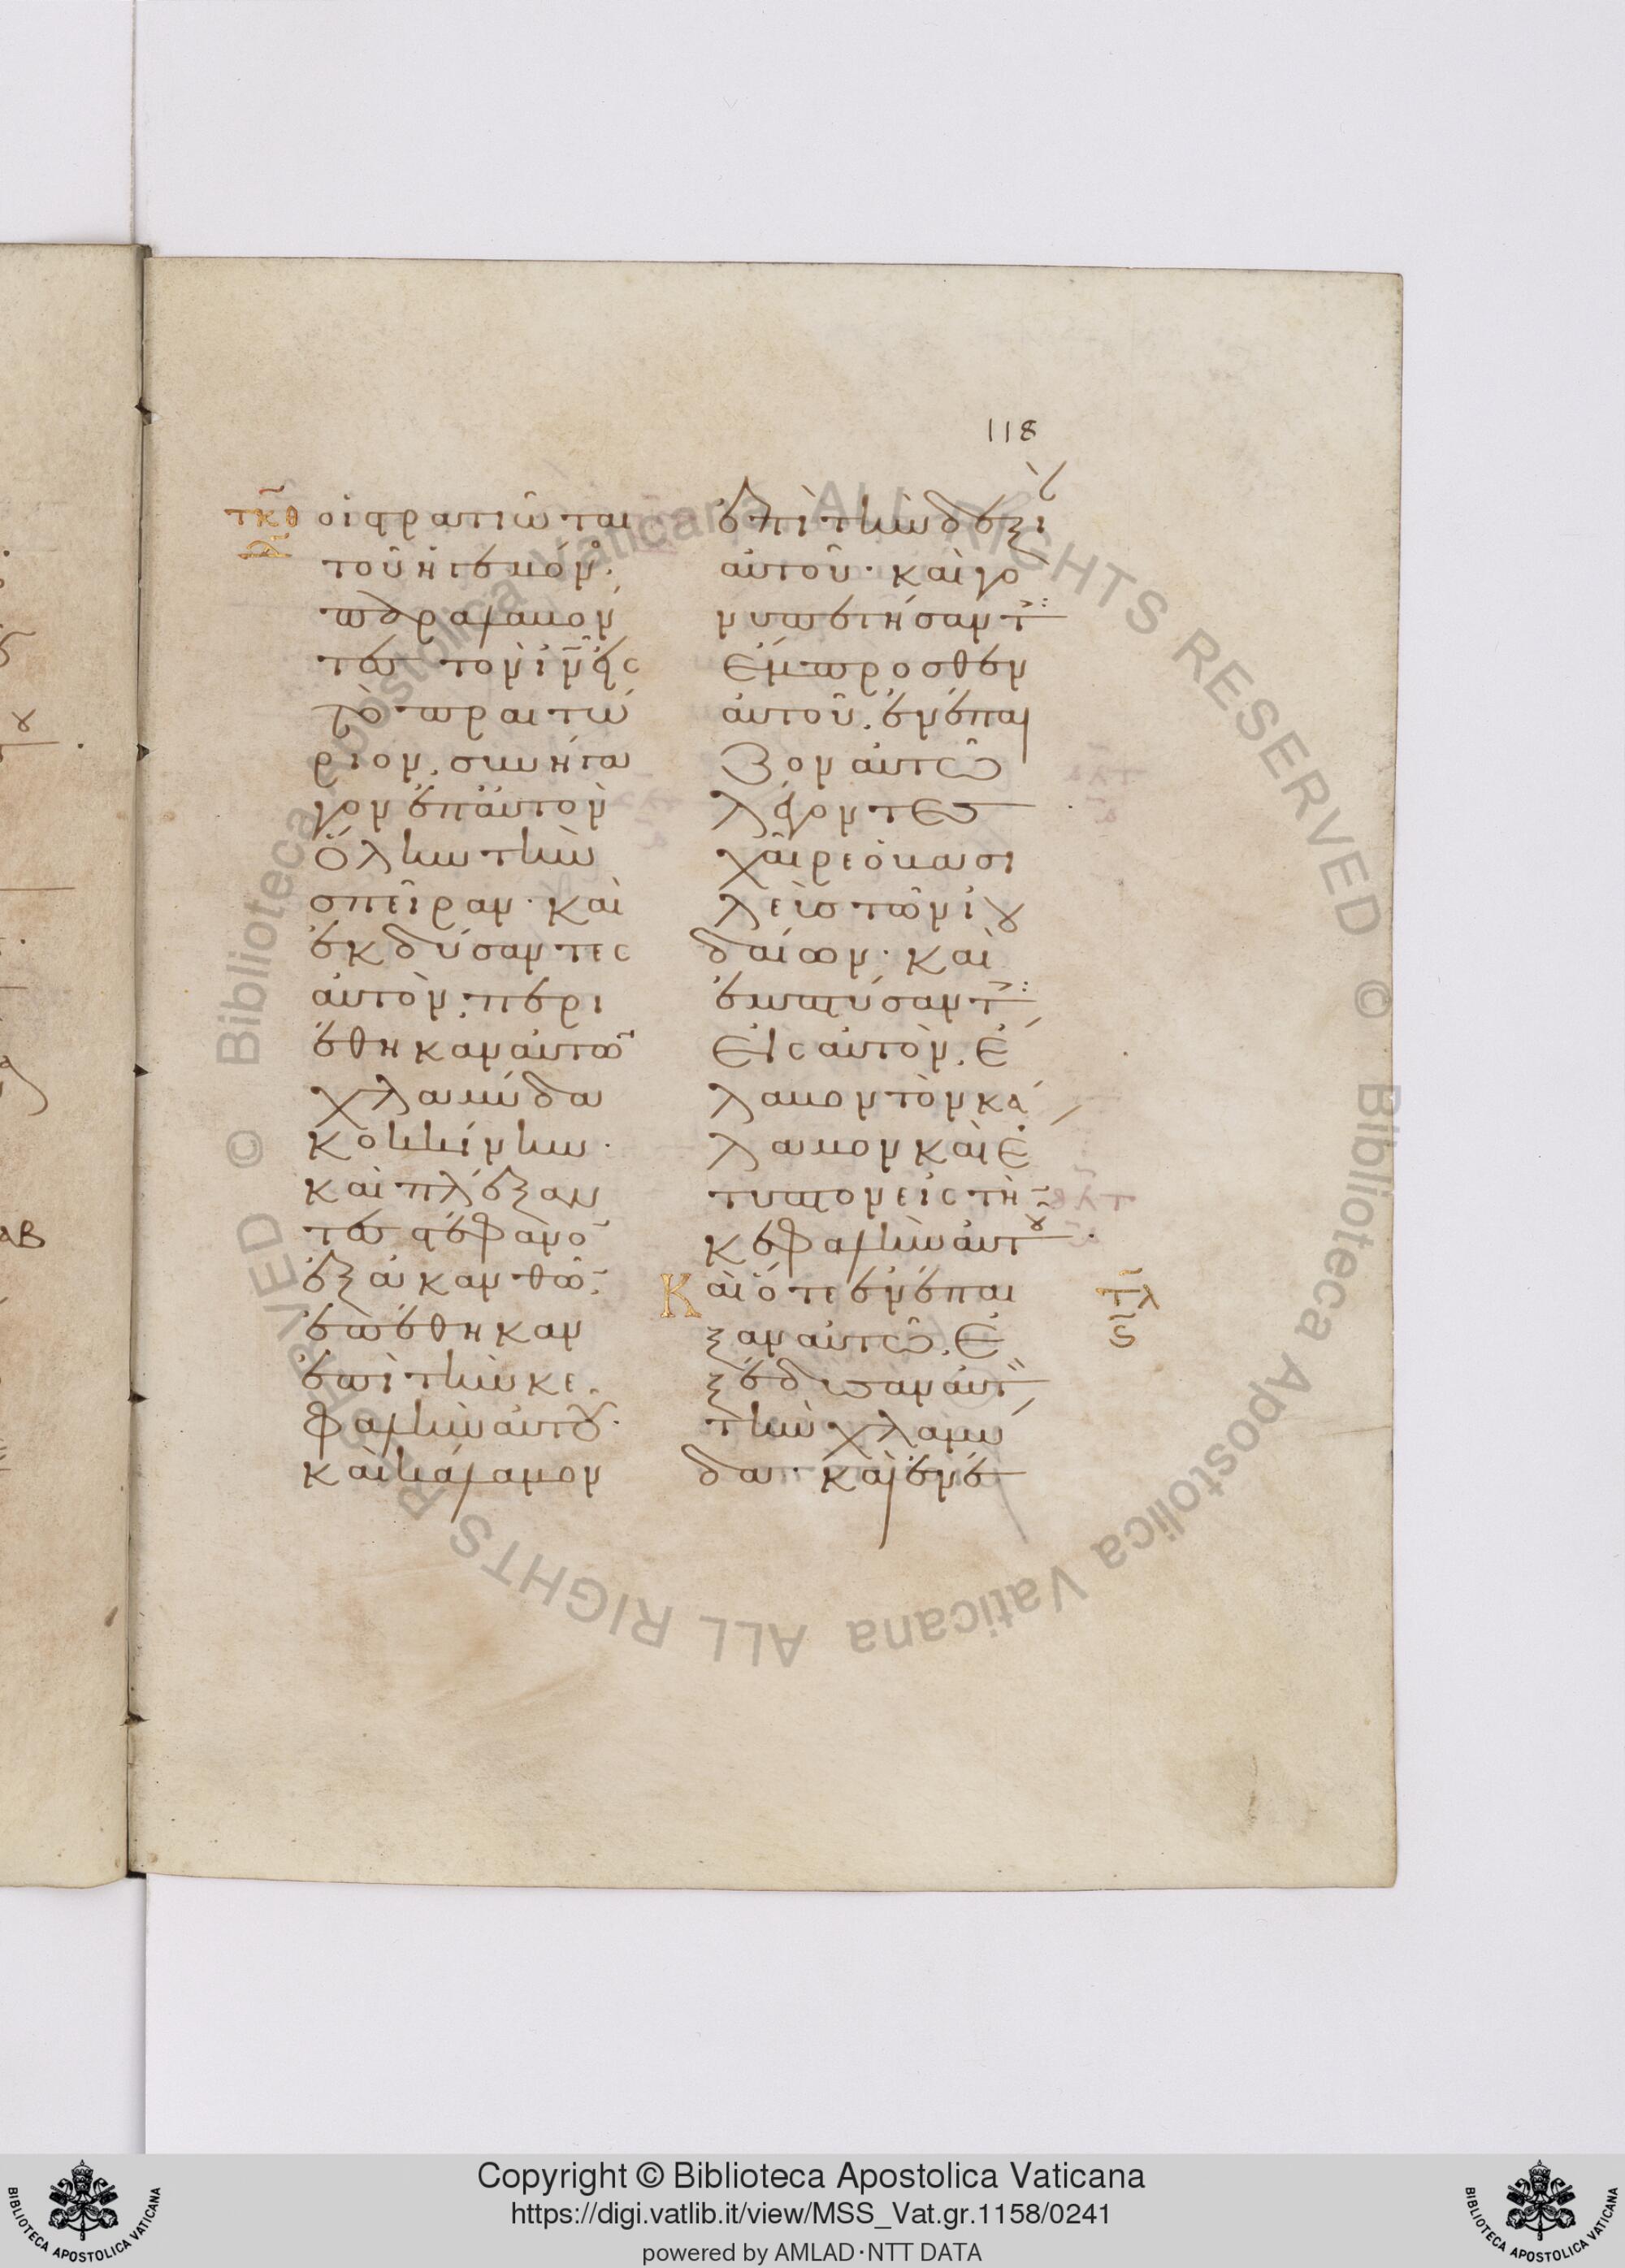 118
τκθ οἱ στρατιῶται
τοῦ ἡγεμόνος
παραλαβόν
τες τὸν ιν εἰς
τὸ πραιτώ
ριον, συνήγα
γον ἐπ' αὐτὸν
ὅλην τὴν
σπεῖραν· καὶ
ἐκδύσαντες
αὐτὸν, περι
έθηκαν αὐτῶ
χλαμύδα
κοκκίνην·
καὶ πλέξαν
τες στέφανον
ἐξ ἀκανθῶν,
ἐπέθηκαν
ἐπὶ τὴν κε
φαλὴν αὐτοῦ·
καὶ κάλαμον
ἐπὶ τὴν δεξιὰν
αὐτοῦ· καὶ γο
νυπετήσαντες
ἔμπροσθεν
αὐτοῦ, ἐνέπαι
ζον αὐτῶ
λέγοντες
χαῖρε ὁ βασι
λεὺς τῶν ἰου
δαίων· καὶ
ἐμπτύσαντες
εἰς αὐτὸν, ἔ
λαβον τὸν κά
λαμον καὶ ἔ
τυπτον εἰς τὴν
κεφαλὴν αὐτοῦ.
Καὶ ὅτε ἐνέπαι
ξαν αὐτῶ, ἐ
ξέδυσαν αὐτὸν
τὴν χλαμύ
δα· καὶ ἐνέ
τλ
ς
Copyright © Biblioteca Apostolica Vaticana
https://digi.vatlib.it/view/MSS_Vat.gr.1158/0241
powered by AMLAD·NTT DATA
BIBLIOTECA APOSTOLICA VATICANA
BIBLIOTECA APOSTOLICA VATICANA